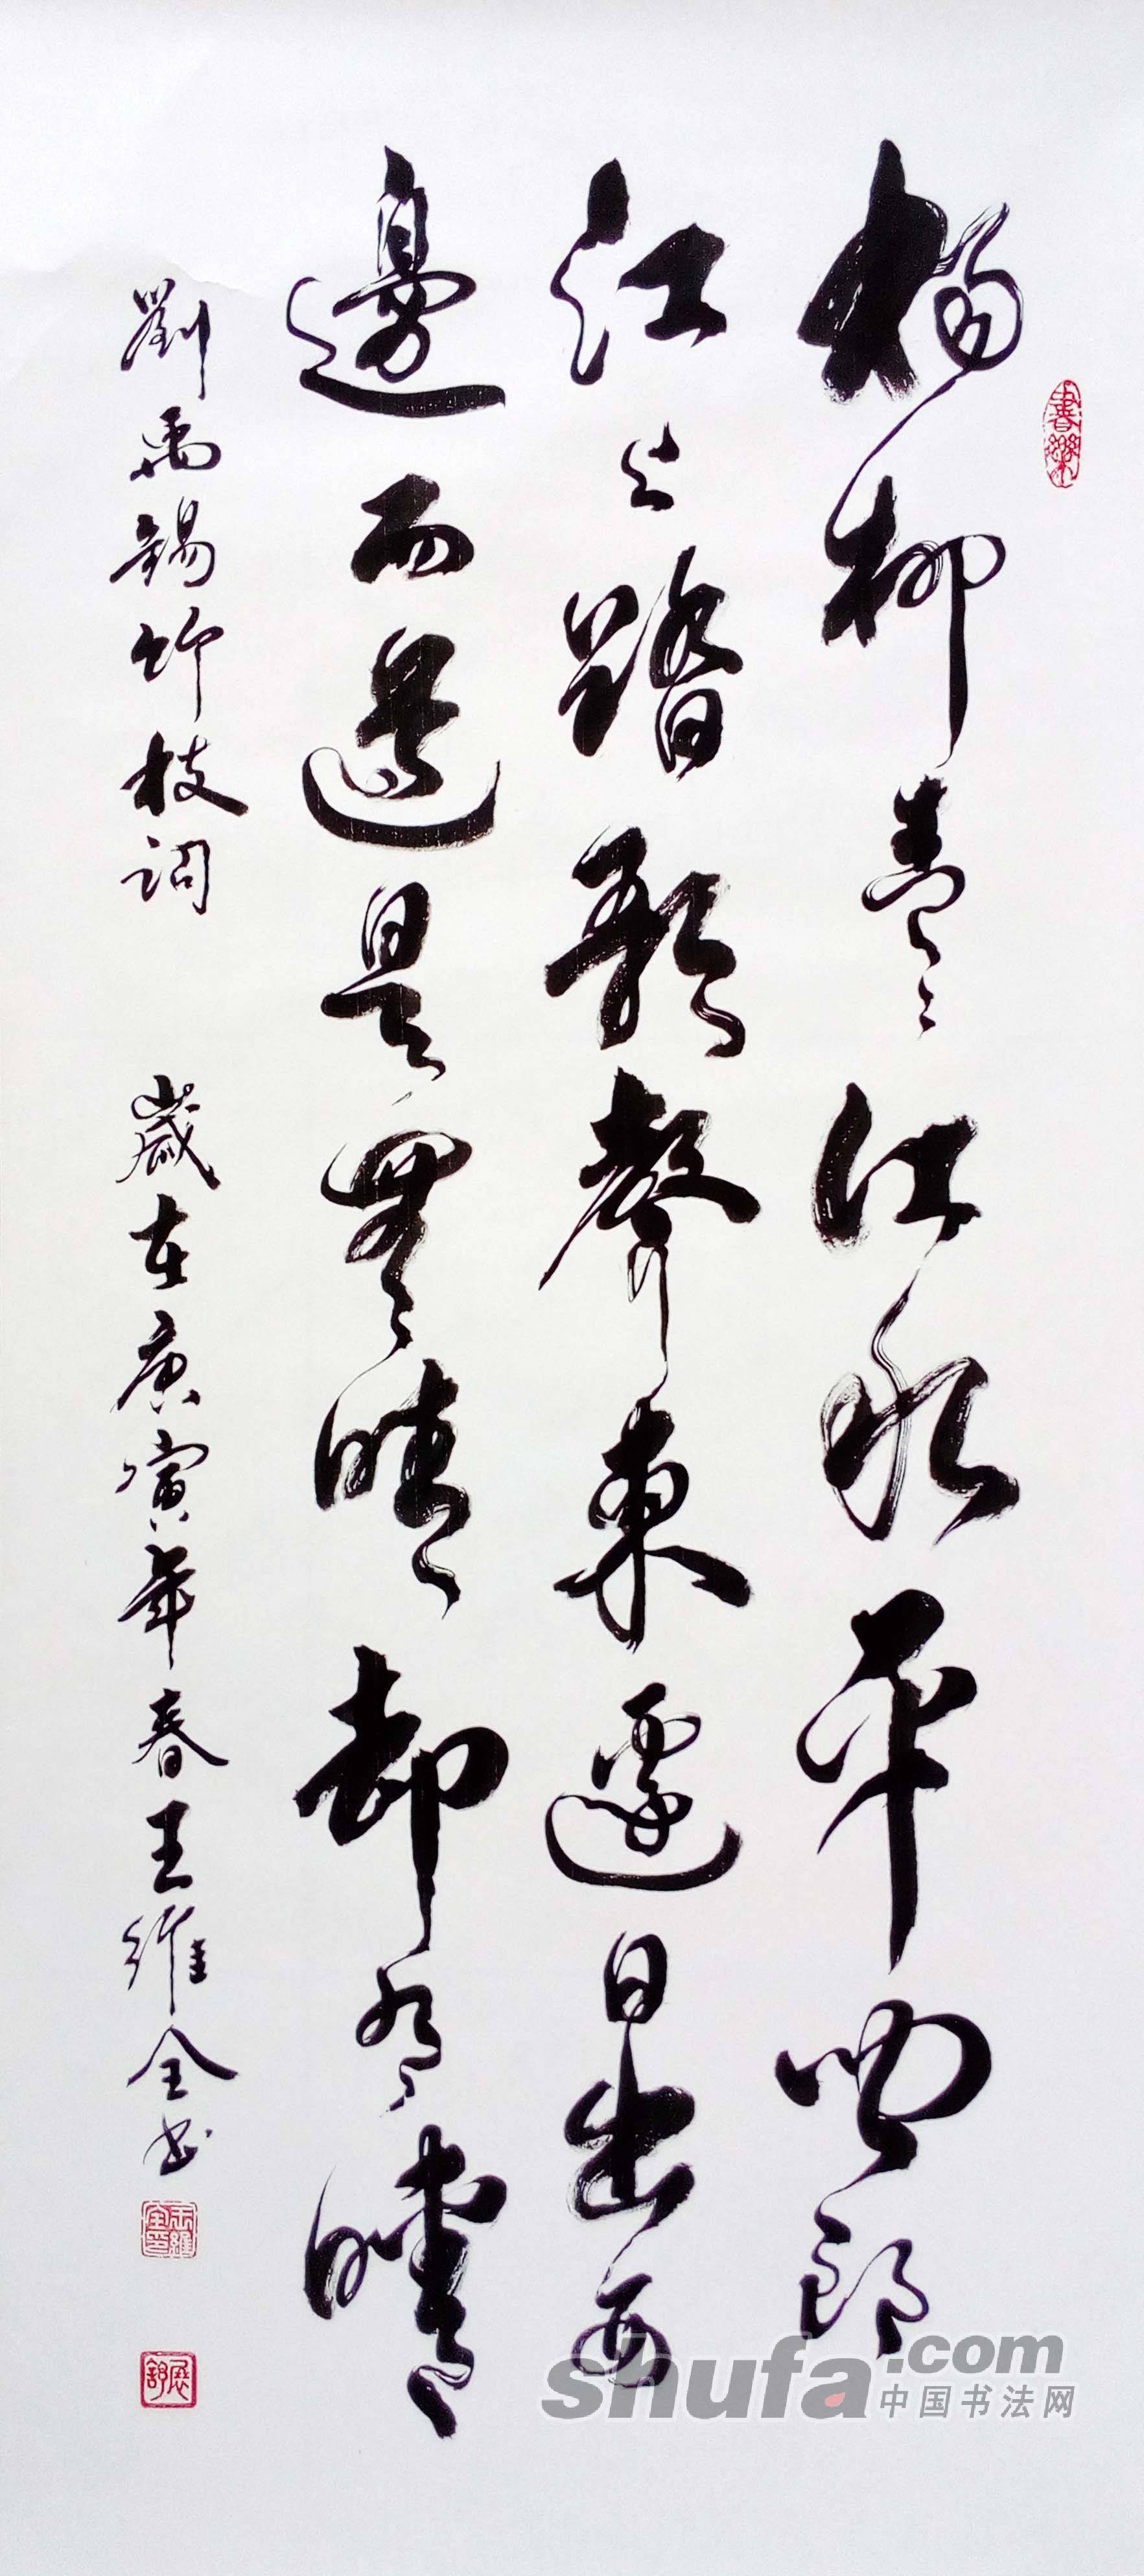 楊柳青青江水平聞郎
江上踏歌聲東邊日出西
邊雨還是無晴卻有晴
劉禹錫竹枝詞 歲在庚寅年春王維全書
書樂
王維全印
展舒
shufa.com
中国书法网